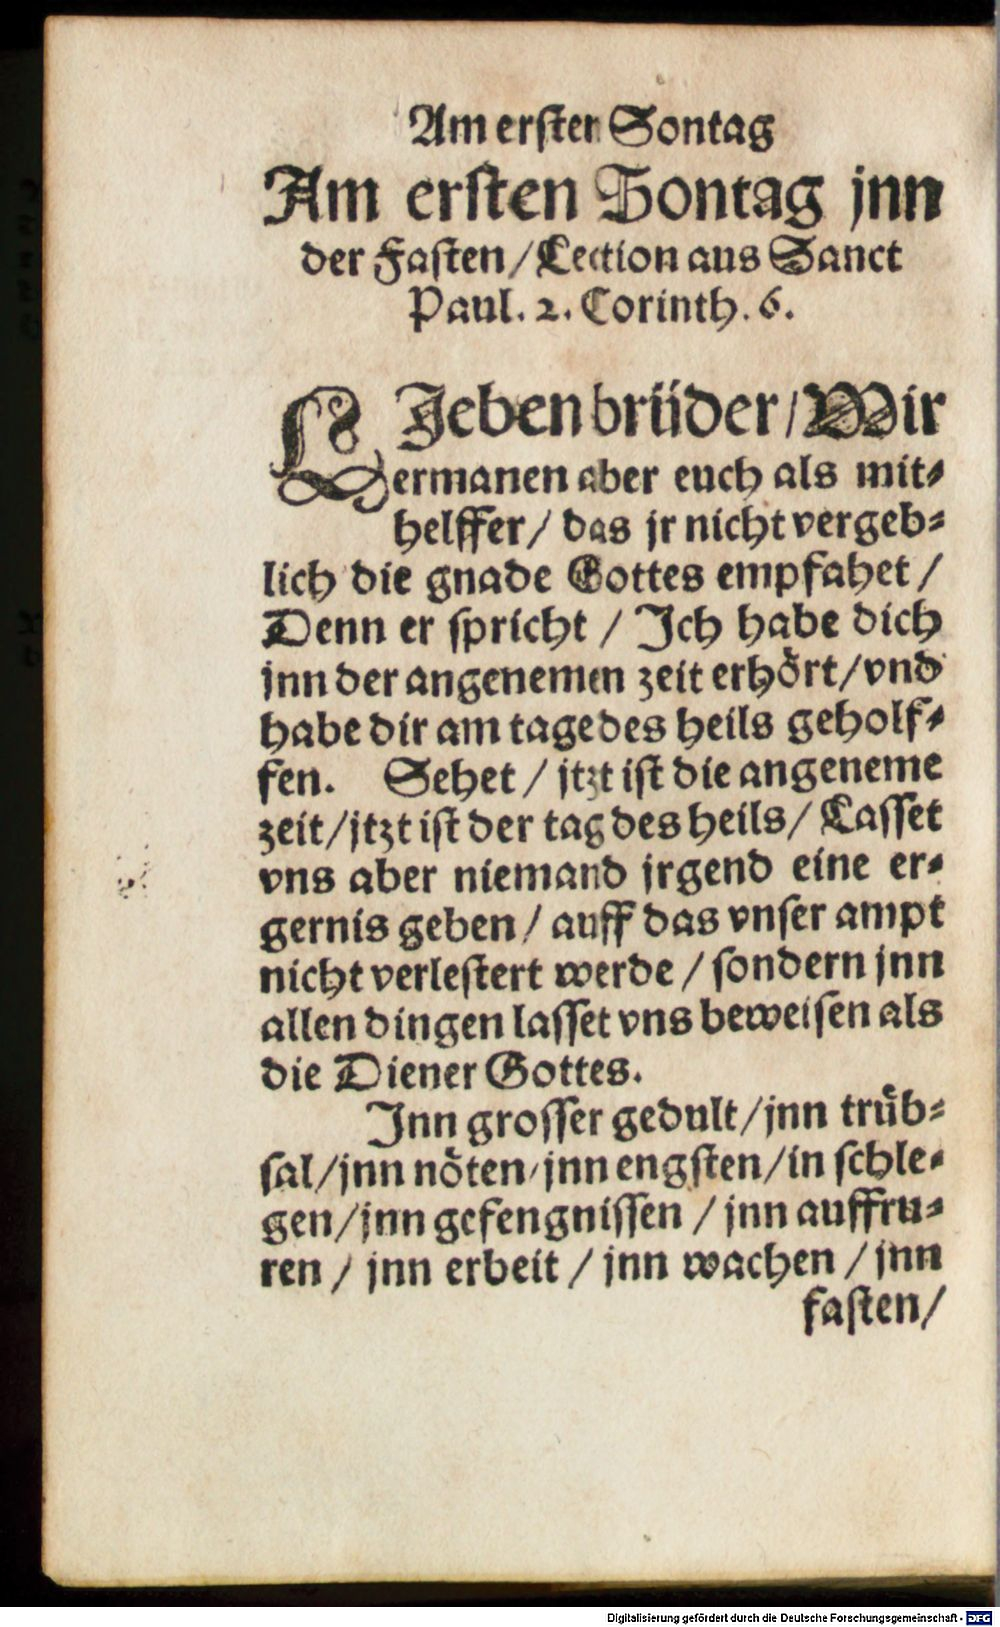 Am ersten Sontag
Am ersten Sontag jnn
der Fasten / Lection aus Sanct
Paul. 2. Corinth. 6.
LJeben brüder / Wir
ermanen aber euch als mit⸗
helffer / das jr nicht vergeb⸗
lich die gnade Gottes empfahet /
Denn er spricht / Ich habe dich
jnn der angenemen zeit erhoͤrt / vnd
habe dir am tage des heils geholf⸗
fen. Sehet / jtzt ist die angeneme
zeit / jtzt ist der tag des heils / Lasset
vns aber niemand jrgend eine er⸗
gernis geben / auff das vnser ampt
nicht verlestert werde / sondern jnn
allen dingen lasset vns beweisen als
die Diener Gottes.
Jnn grosser gedult / jnn truͤb⸗
sal / jnn noͤten / jnn engsten / in schle⸗
gen / jnn gefengnissen / jnn auffru⸗
ren / jnn erbeit / jnn wachen / jnn
fasten /
Digitalisierung gefördert durch die Deutsche Forschungsgemeinschaft - DFG